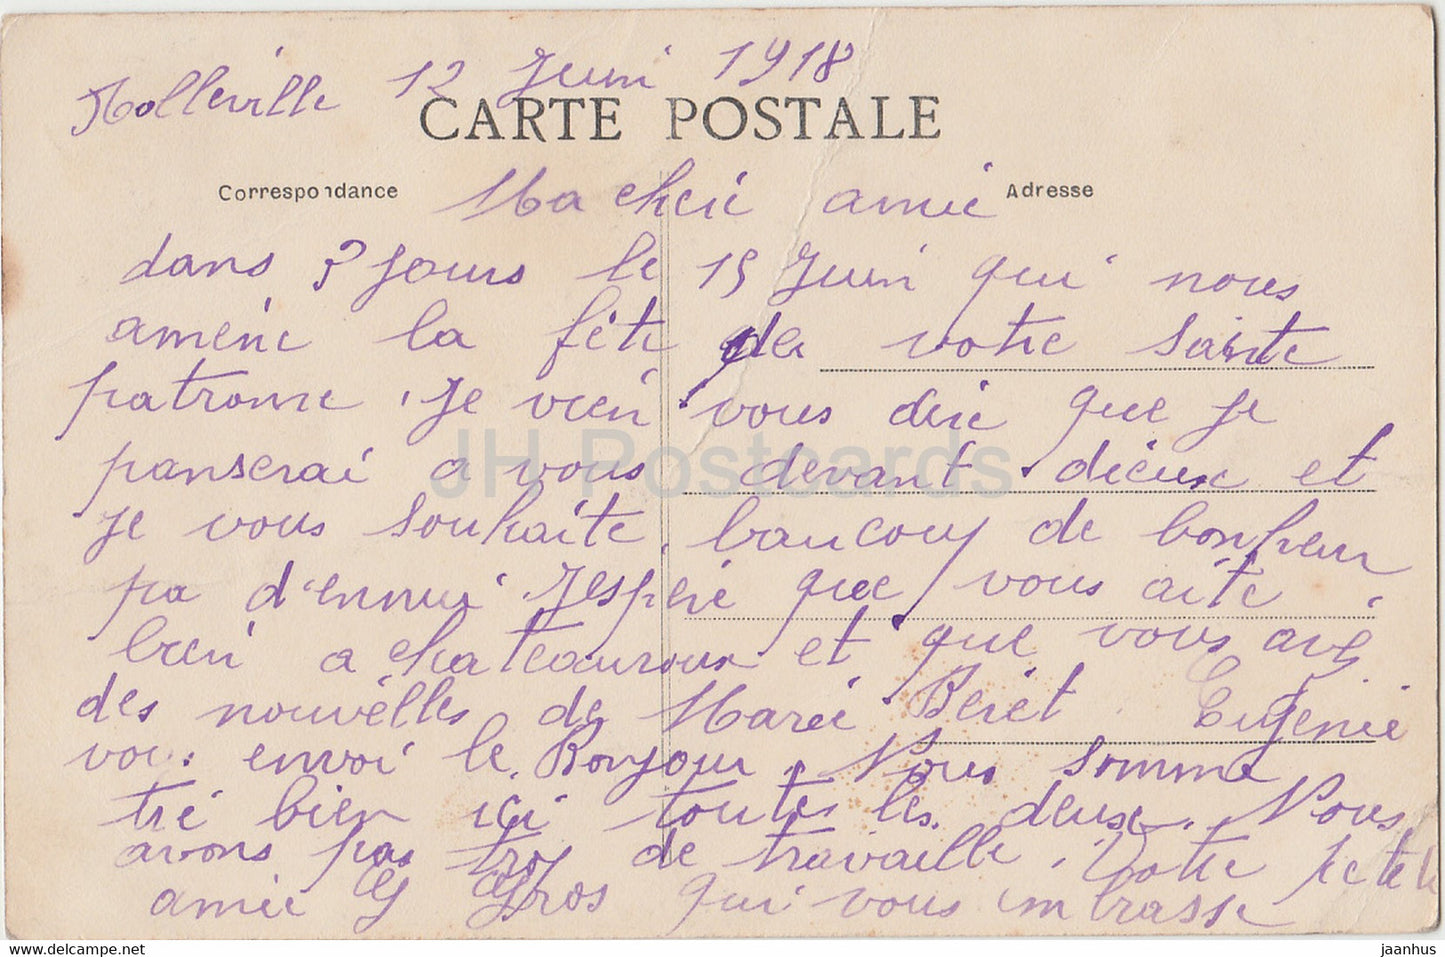 Molleville 12 Juin 1918
CARTE POSTALE
Correspondance
Adresse
Ma cheré amie
dans 3 jours le 15 Juin qui nous
amène la fête de votre Sainte
patronne, je vien vous dire que je
panserai a vous devant dieux et
je vous souhaite baucoup de bonheur
pa d'ennui Jespere que vous aite
bien a chateauroux et que vous avez
des nouvelles de Marie Beret Eugenie
vous envoi le Bonjour. Nous somme
tré bien içi toutes les deux. Nous
avons pas trop de travaille. Votre petete
amie G Gros qui vous imbrasse
JH Postcards
www.hippostcard.com
jaanhus